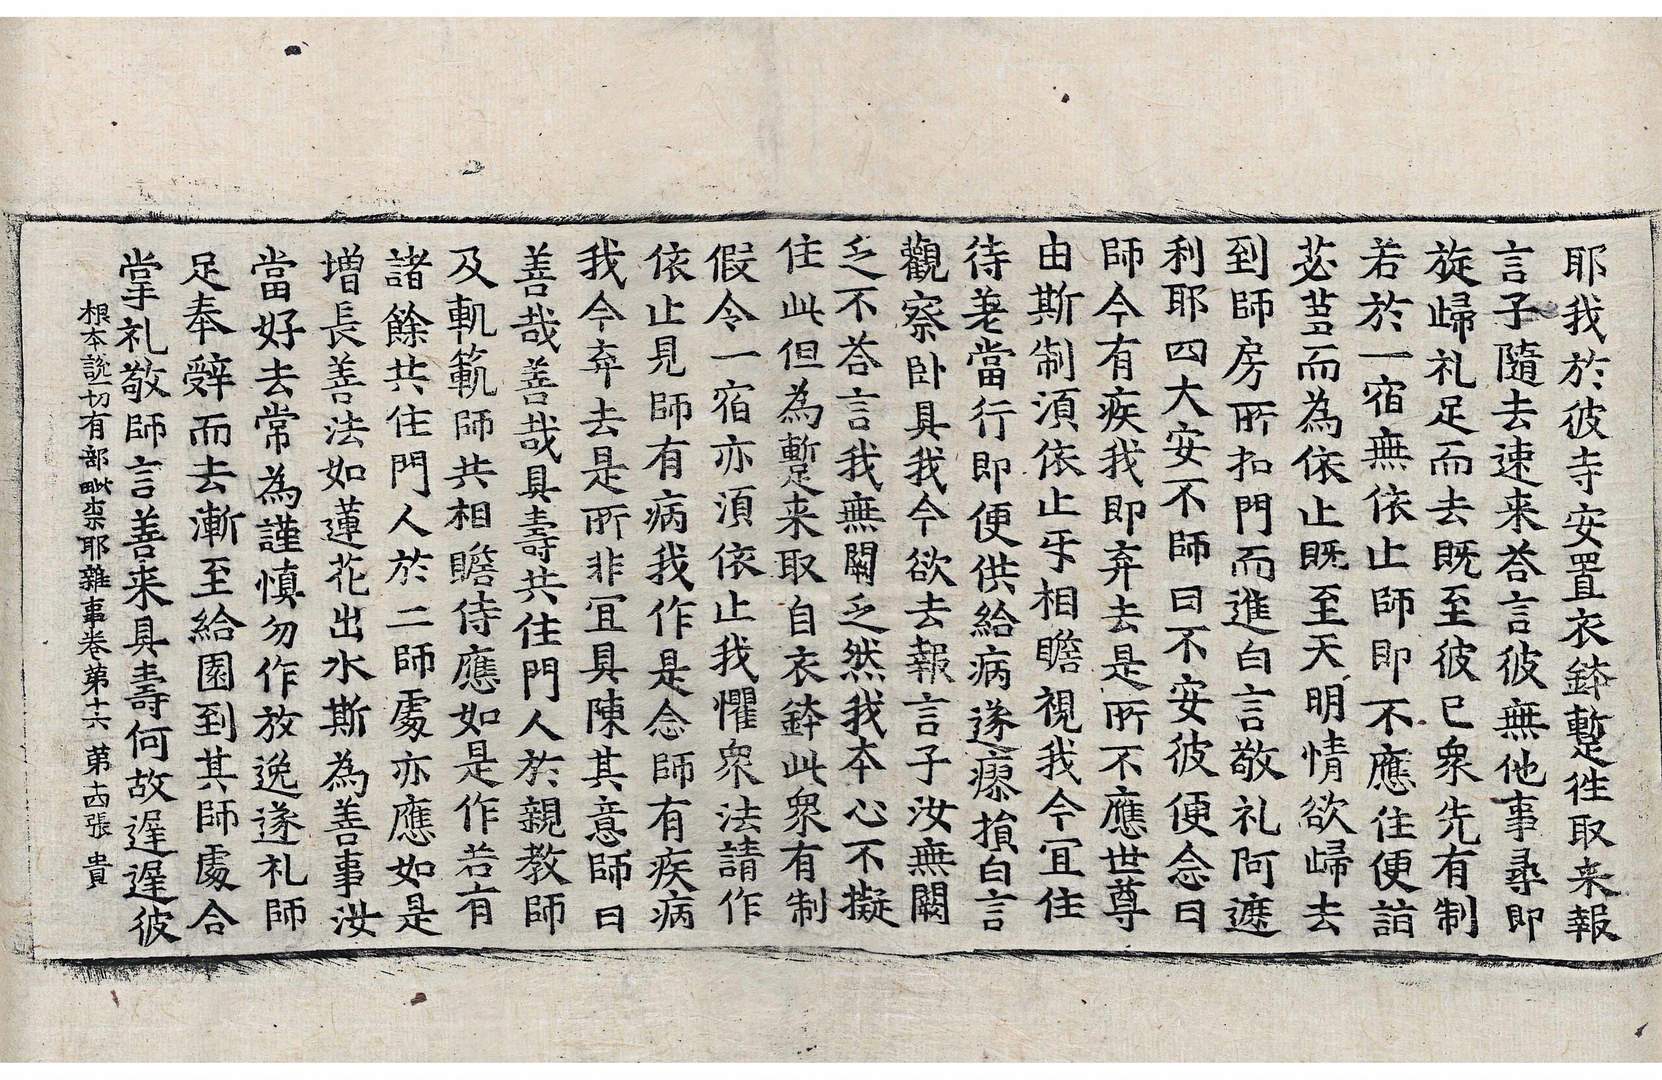 耶我於彼寺安置衣鉢暫徃取来報
言子隨去速来荅言彼無他事尋即
旋歸礼足而去既至彼已衆先有制
若於一宿無依止師即不應住便詣
苾蒭而為依止既至天明情欲歸去
到師房所扣門而進白言敬礼阿遮
利耶四大安不師曰不安彼便念曰
師今有疾我即弃去是所不應世尊
由斯制湏依止𠄔相瞻視我今冝住
待差當行即便供給病遂瘳損白言
觀察卧具我今欲去報言子汝無闕
乏不荅言我無闕乏然我本心不擬
住此但為暫来取自衣鉢此衆有制
假令一宿亦湏依止我懼衆法請作
依止見師有病我作是念師有疾病
我今弃去是所非冝具陳其意師曰
善哉善哉具壽共住門人於親教師
及軌範師共相瞻侍應如是作若有
諸餘共住門人於二師處亦應如是
增長善法如蓮花出水斯為善事汝
當好去常為謹慎勿作放逸遂礼師
足奉辭而去漸至給園到其師處合
掌礼敬師言善来具壽何故遲遲彼
根本說一切有部毗柰耶雜事卷苐十六 苐十四張 貴